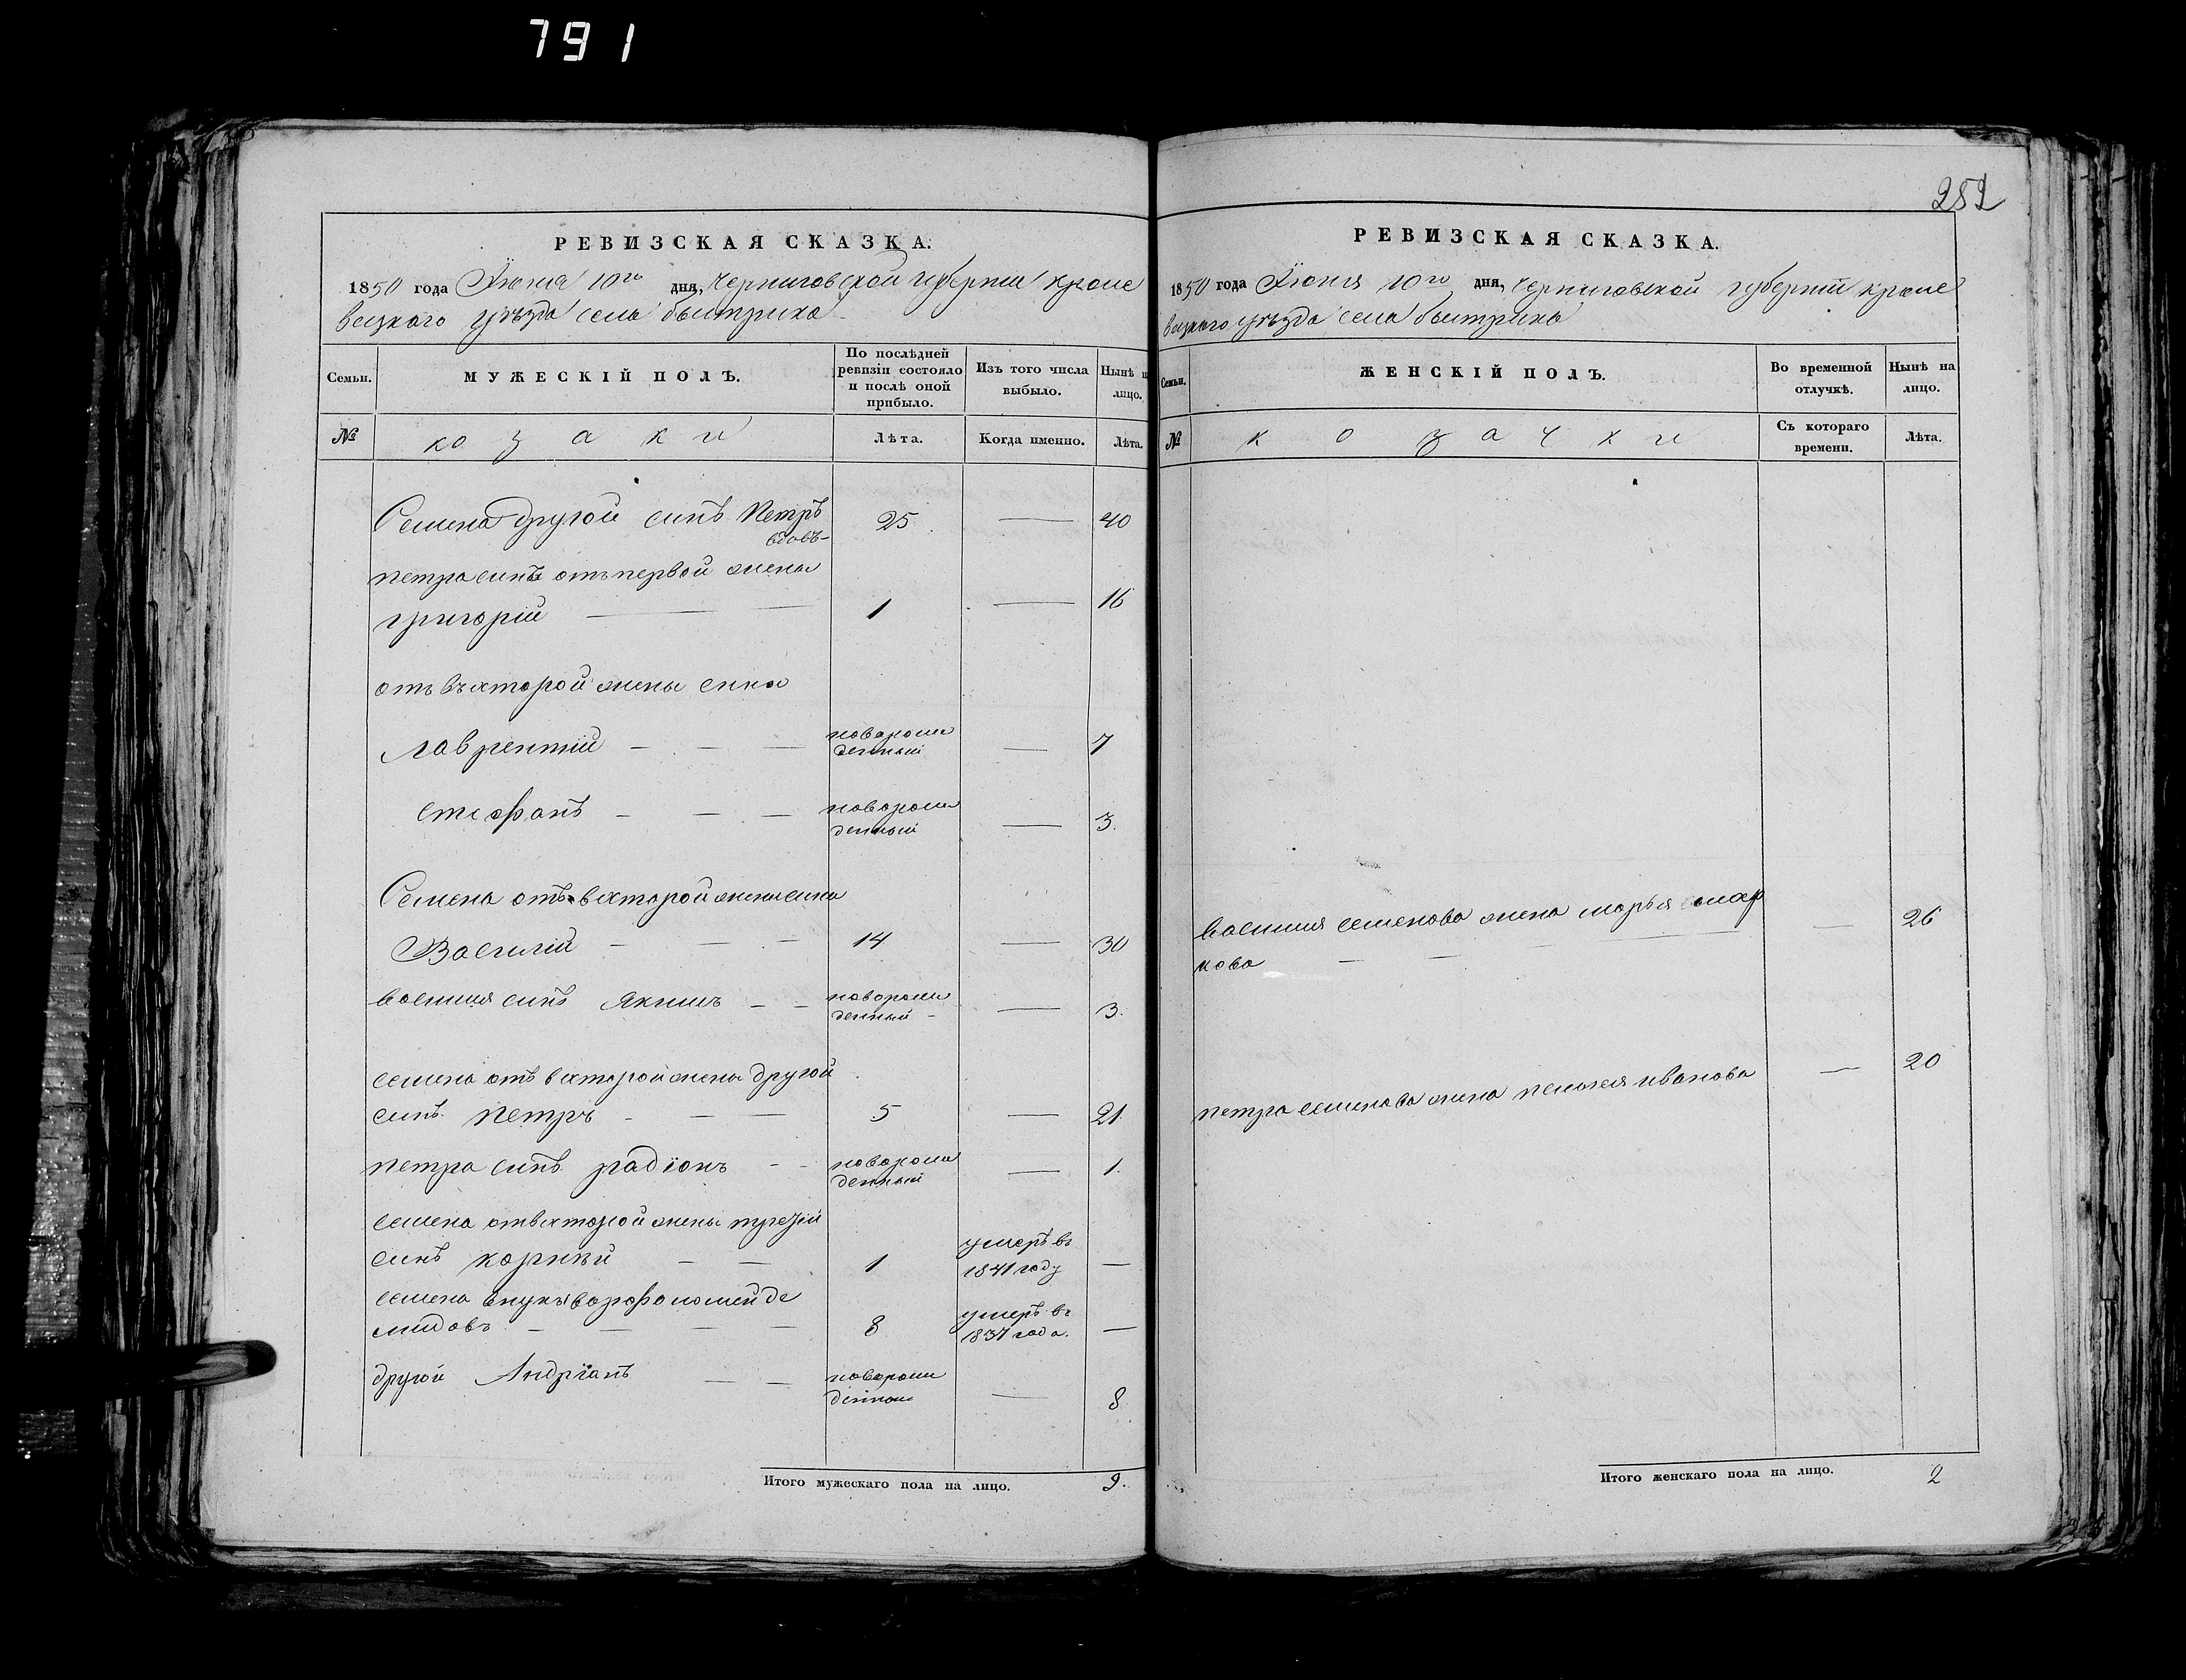 791
РЕВИЗСКАЯ СКАЗКА.
1850 года Июня 10го дня, Черниговской губерніи кроле
вецкаго уѣзда села быстрика
Семьи.
МУЖЕСКІЙ ПОЛЪ.
По послѣдней ревизіи состояло и послѣ оной прибыло.
Изъ того числа выбыло.
Нынѣ н лицо.
№
козаки
Лѣта.
Когда именно.
Лѣта.
Семена другой синъ Петръ 25 — 40
вдовъ
петра синъ отъ первой жены
григорій — 1 — 16
отъ въхторой жены сины
лаврентій — новорож
денный — 7
стефанъ — новорож
денный — 3.
Семена отъ вхторой жены сины
Василій — 14 — 30
василия синъ якимъ — новорож
денный — 3.
семена отъ вхторой жены другой
синъ петръ — 5 — 21.
петра синъ радіонъ — новорож
денный — 1.
семена отвхторой жены третій
синъ корнѣй — 1 умеръ въ
1841 году —
семена внукъ варфоломей де
мидовъ — 8 умеръ въ
1837 года. —
другой Андріанъ — новорож
денный — 8
Итого мужескаго пола на лицо. 9.
252
РЕВИЗСКАЯ СКАЗКА.
1850 года Июня 10го дня, Черниговской губерніи кроле
вецкаго уѣзда села быстрика
Семьи.
ЖЕНСКІЙ ПОЛЪ.
Во временной отлучкѣ.
Нынѣ на лицо.
№
козачки
Съ котораго времени.
Лѣта.
василия семенова жена марья
— 26
петра семенова жена пелагея иванова — 20
Итого женскаго пола на лицо. 2